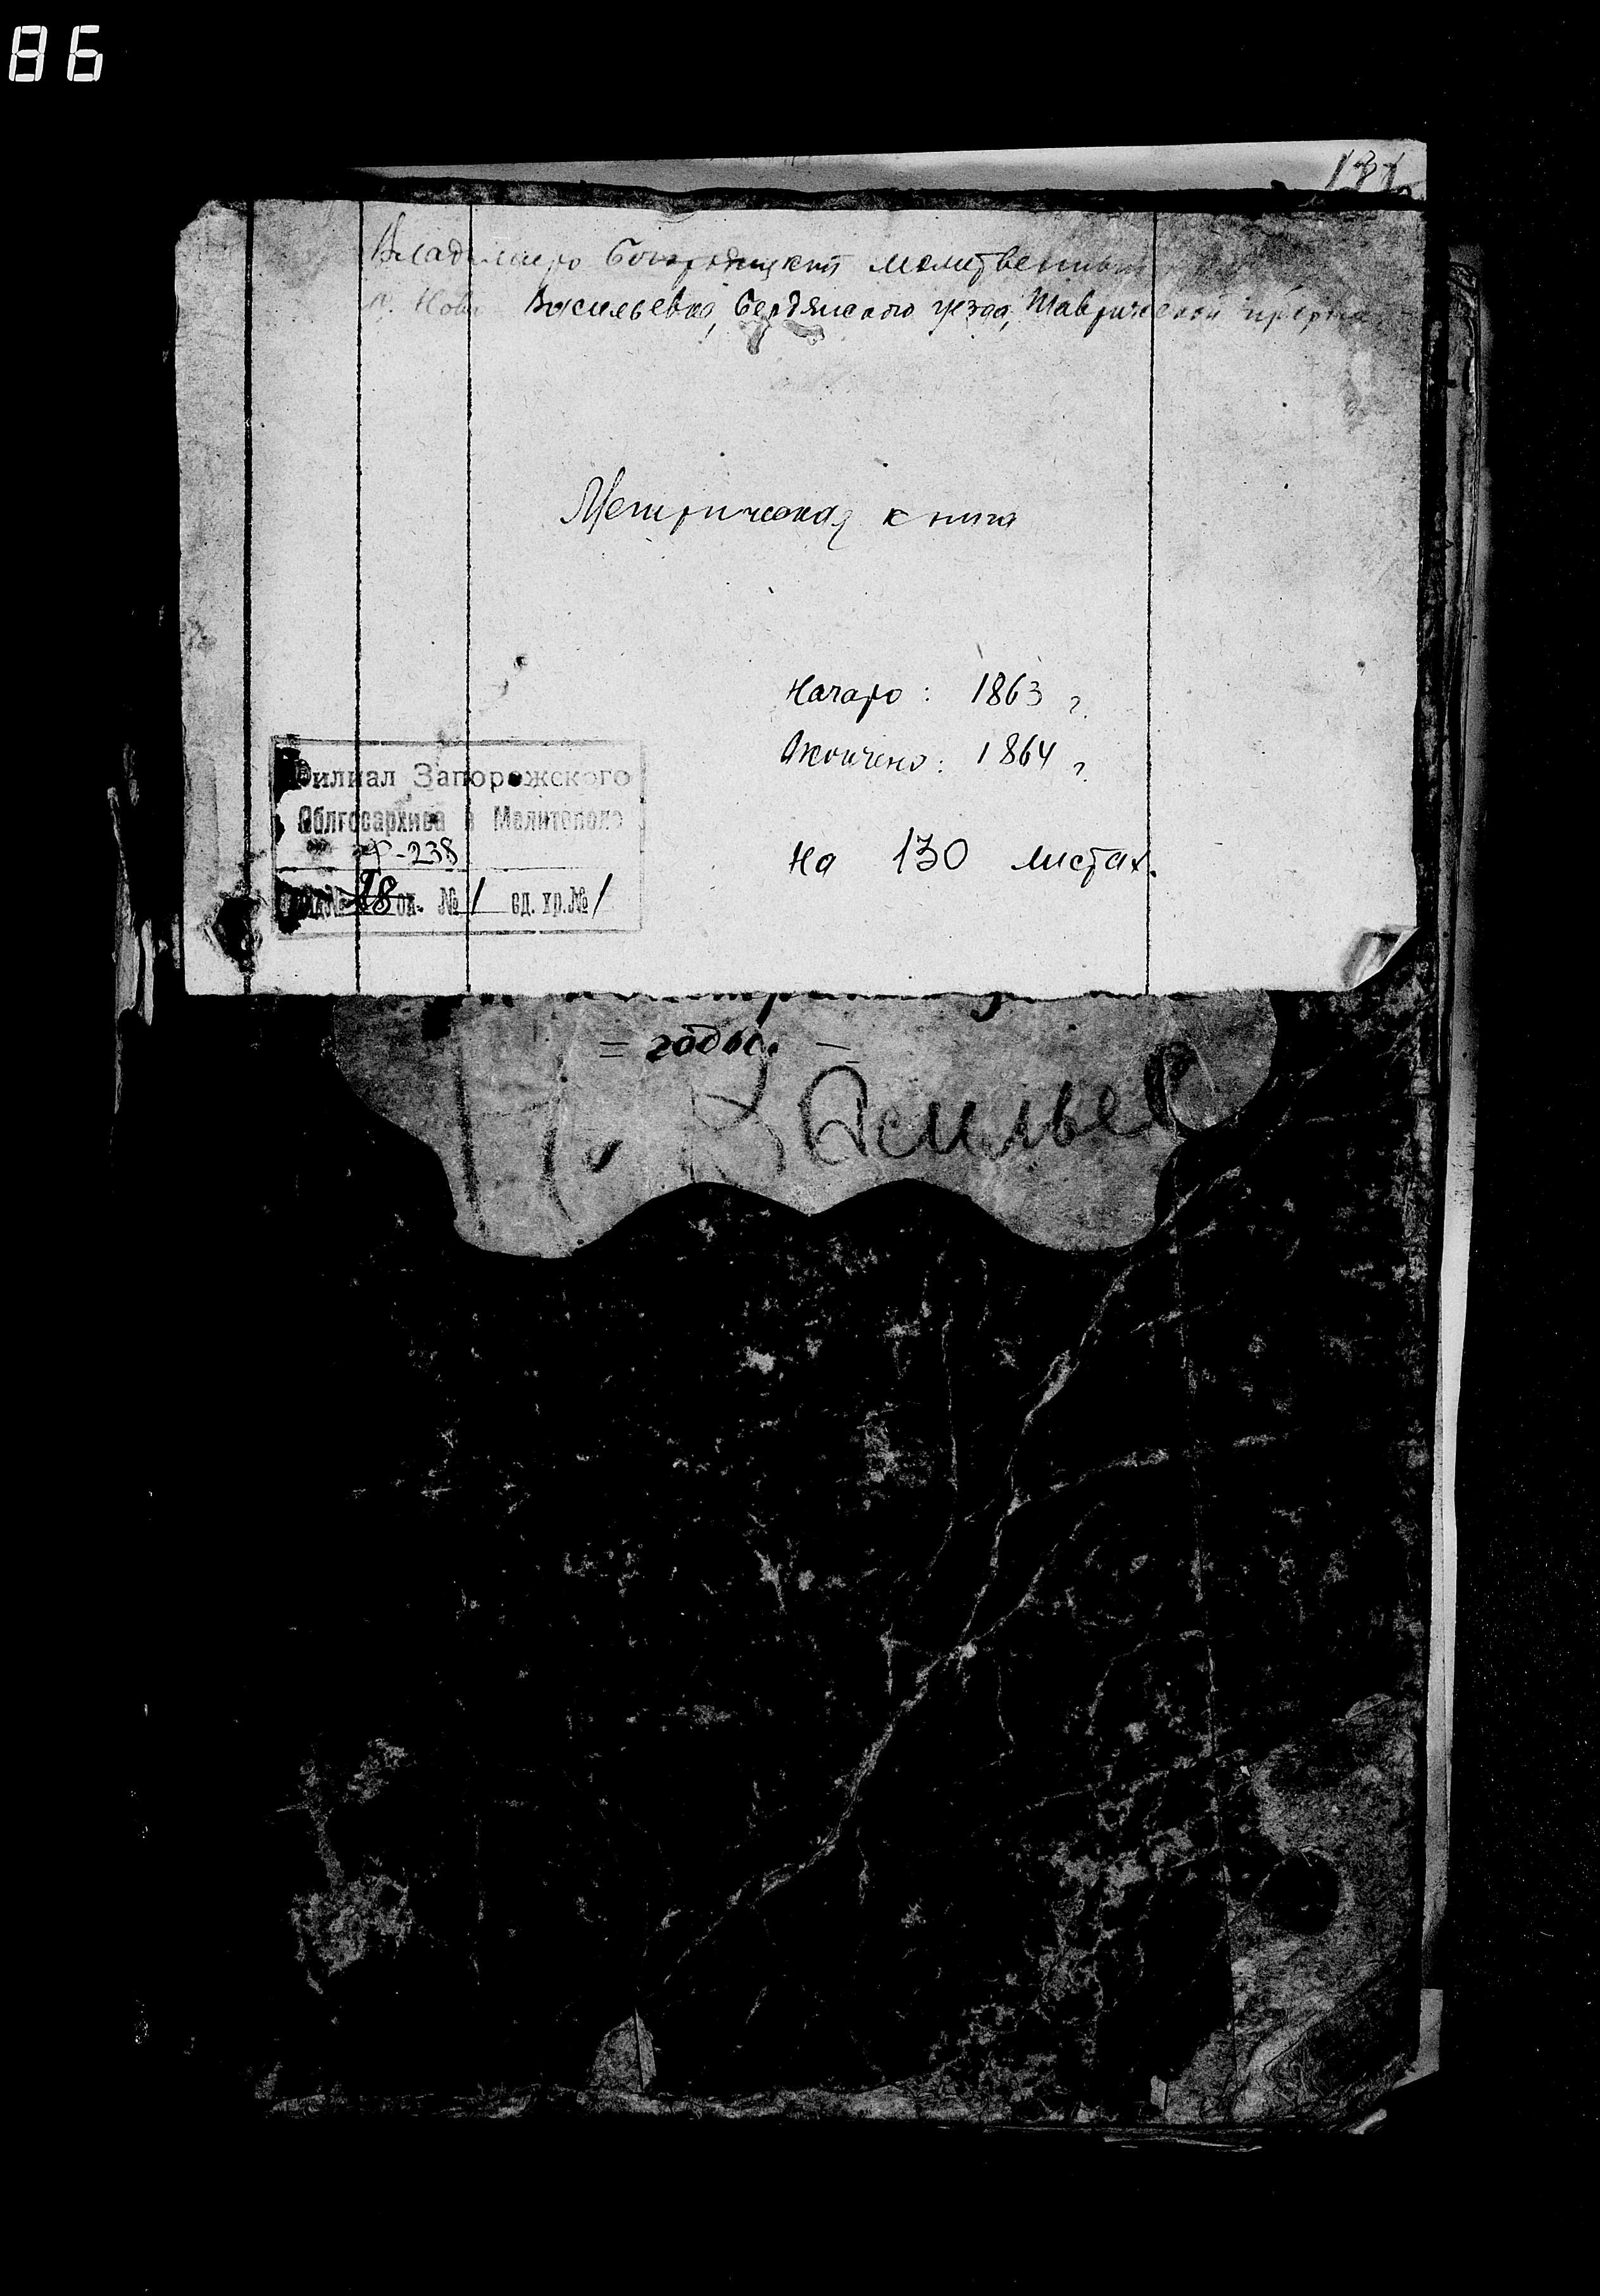 86
131
Владимиро Богородицкий молитвенный
п. Ново Васильевка, Бердянского уезда, Таврической губернии
Метрическая книга
Начато: 1863 г.
Окончено: 1864 г.
На 130 листах.
Филиал Запорожского
Облгосархива в Мелитополе
Ф-238
18 оп. № 1 ед. хр. № 1
= годы. —
Васильев